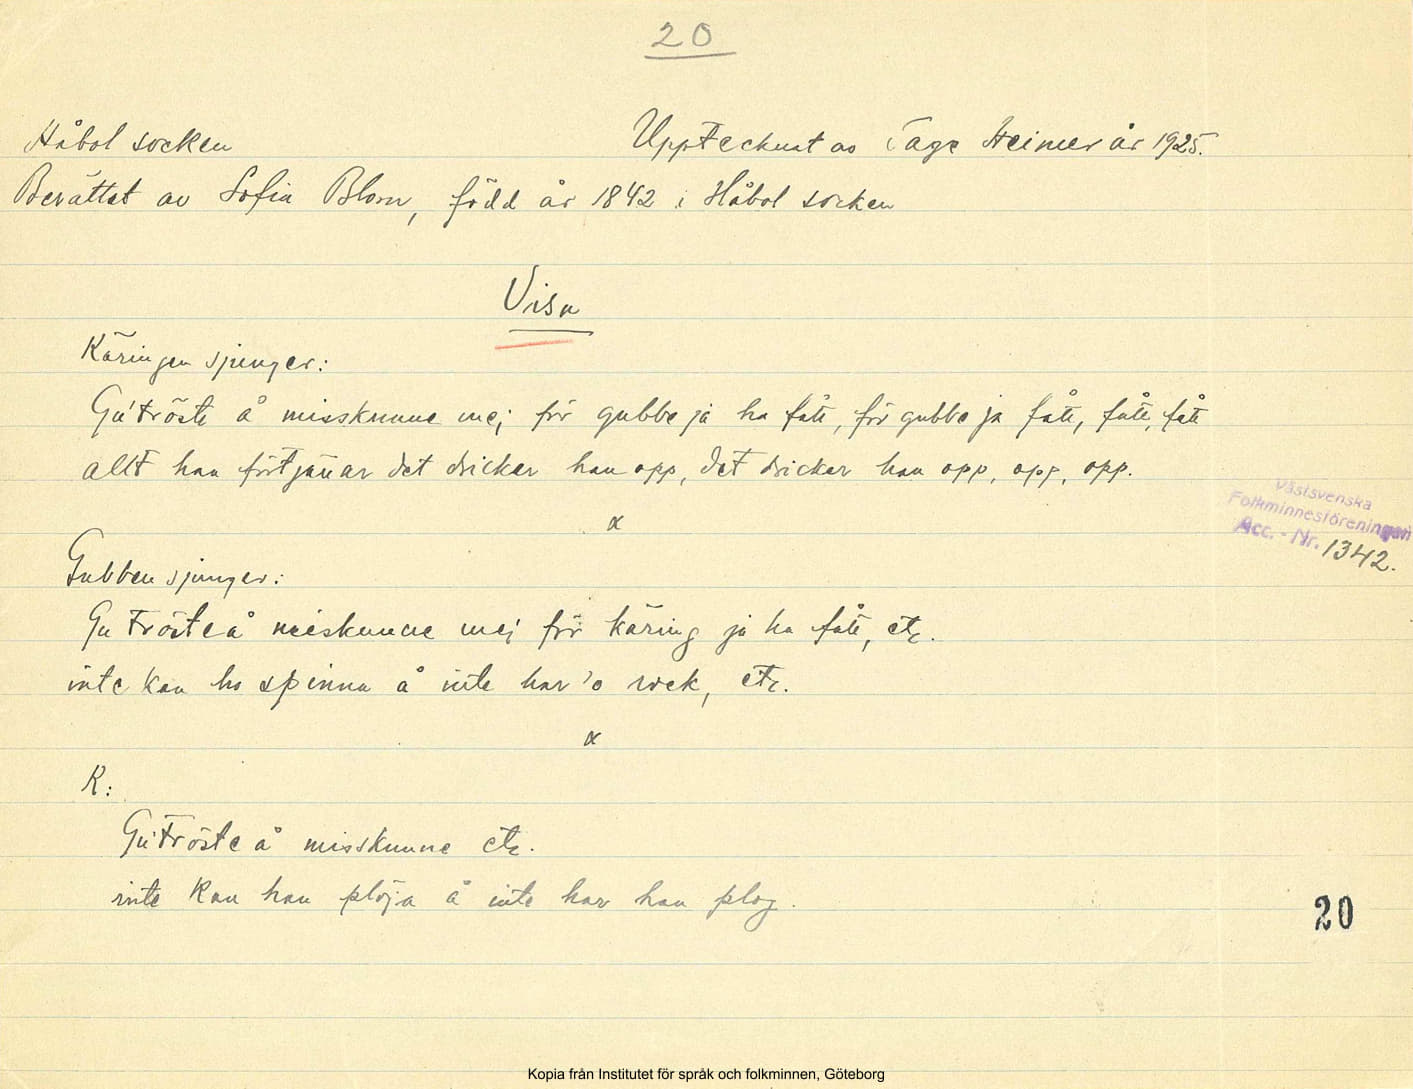 20
Håbol socken
Upptecknat av Tage Heimer år 1925.
Berättat av Sofia Blom, född år 1842 i Håbol socken
Visa
Käringen sjunger:
Gu' tröste å misskunne mej för gubbe ja ha fått, för gubbe ja fått, fått, fått
allt han förtjänar det dricker han opp, det dricker han opp, opp, opp.
Västsvenska
Folkminnesföreningen
Acc. - Nr. 1342.
Gubben sjunger:
Gu tröste å miskunne mej för käring ja ha fått, etc.
inte kan ho spinna å inte har 'o rock, etc.
K:
Gu' tröste å misskunne etc.
inte kan han plöja å inte har han plog.
20
Kopia från Institutet för språk och folkminnen, Göteborg